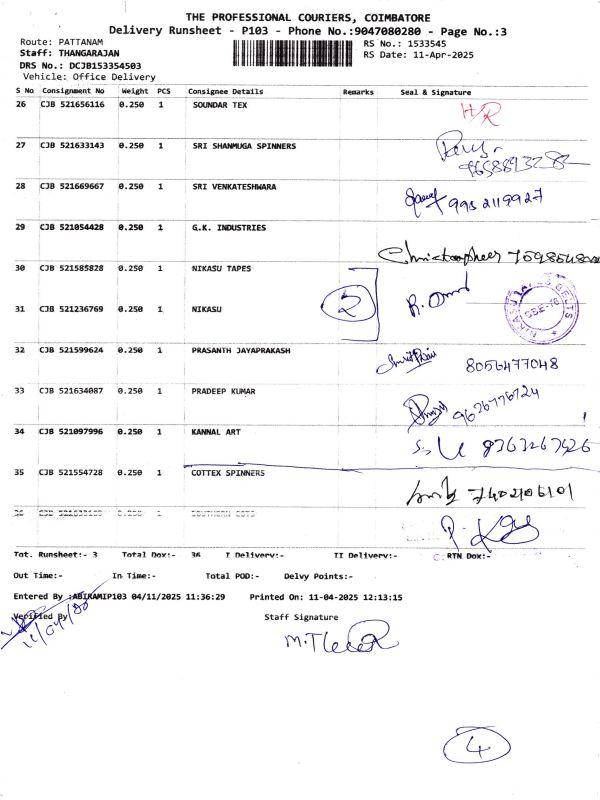 THE PROFESSIONAL COURIERS, COIMBATORE
Delivery Runsheet - P103 - Phone No.:9047080280 - Page No.:3
Route: PATTANAM RS No.: 1533545
Staff: THANGARAJAN RS Date: 11-Apr-2025
DRS No.: DCJB153354503
Vehicle: Office Delivery
S No Consignment No Weight PCS Consignee Details Remarks Seal & Signature
26 CJB 521656116 0.250 1 SOUNDAR TEX HR
27 CJB 521633143 0.250 1 SRI SHANMUGA SPINNERS
28 CJB 521669667 0.250 1 SRI VENKATESHWARA 9952119927
29 CJB 521054428 0.250 1 G.K. INDUSTRIES
30 CJB 521585828 0.250 1 NIKASU TAPES
31 CJB 521236769 0.250 1 NIKASU 2
32 CJB 521599624 0.250 1 PRASANTH JAYAPRAKASH 8056477048
33 CJB 521634087 0.250 1 PRADEEP KUMAR 9676776724
34 CJB 521097996 0.250 1 KANNAL ART
35 CJB 521554728 0.250 1 COTTEX SPINNERS 7402106101
36 CJB 0.250 1 SOUTHERN
Tot. Runsheet:- 3 Total Dox:- 36 I Delivery:- II Delivery:- RTN Dox:-
Out Time:- In Time:- Total POD:- Delvy Points:-
Entered By :ABIRAMIP103 04/11/2025 11:36:29 Printed On: 11-04-2025 12:13:15
Verified By Staff Signature
4